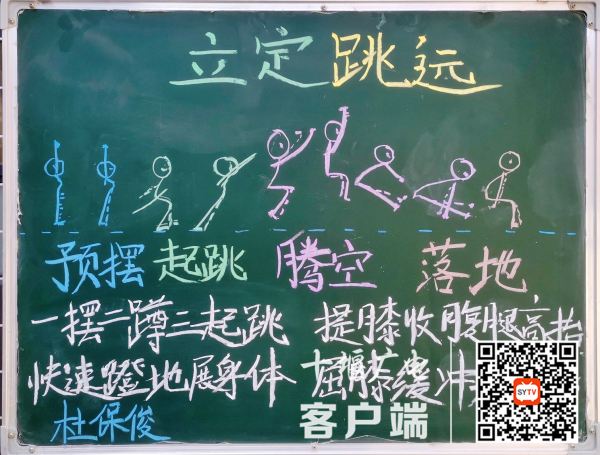 立定跳远
预摆 起跳 腾空 落地
一摆二蹲三起跳 提膝收腹腿高抬
快速蹬地展身体 屈膝缓冲
杜保俊
客户端
SYTV